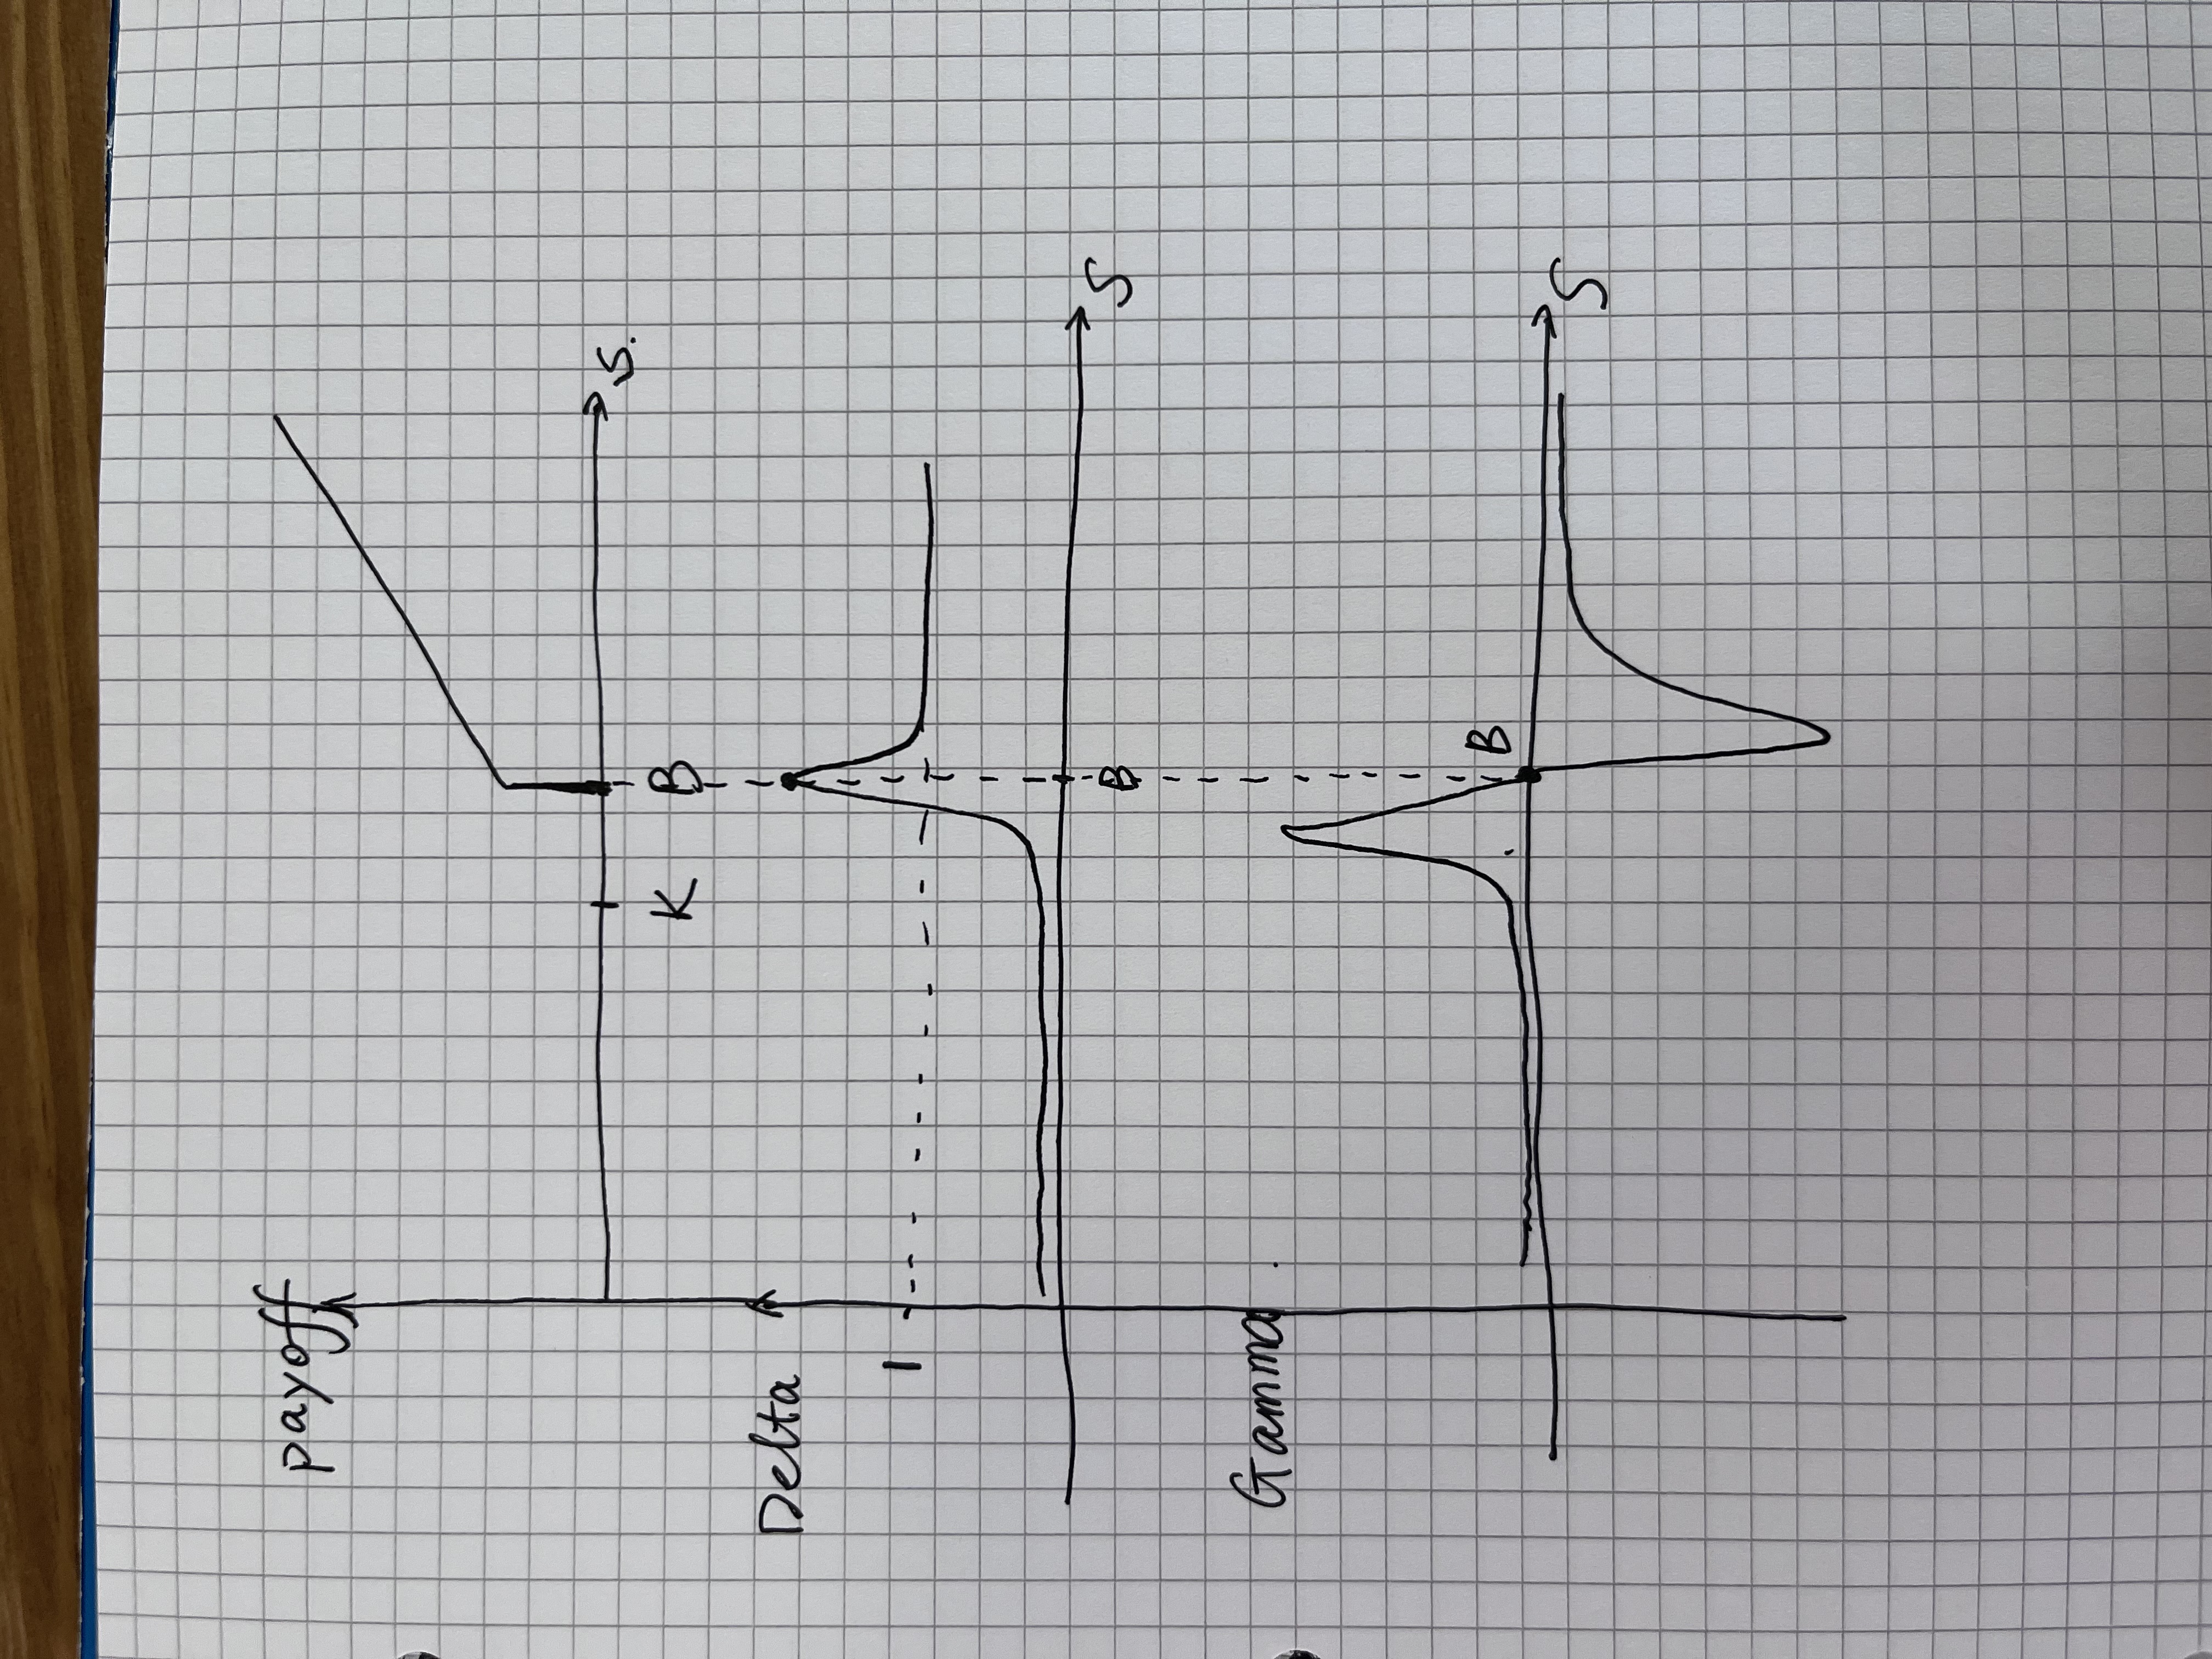 payoff
S.
K
B
Delta
1
S
B
Gamma
B
S